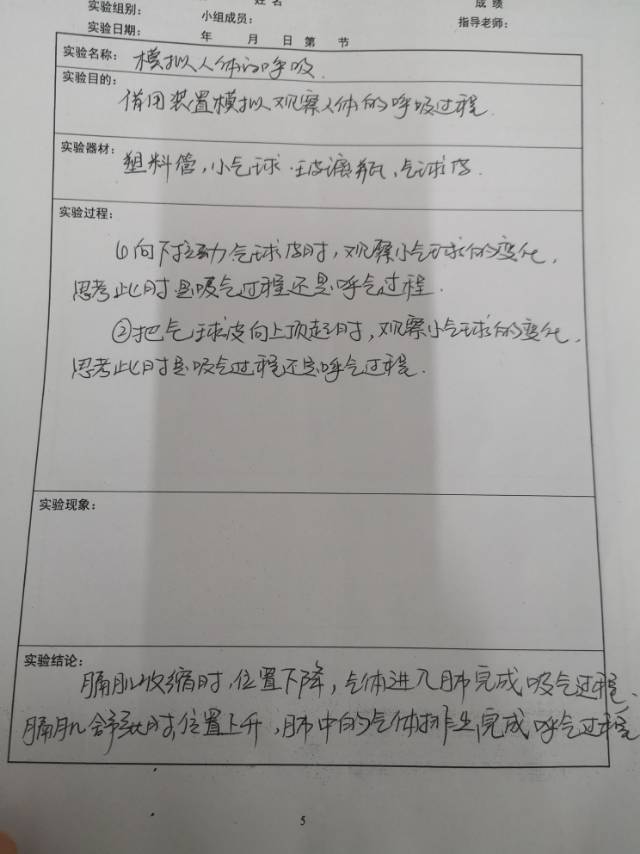 实验组别：
姓名
成绩
小组成员：
指导老师：
实验日期： 年 月 日 第 节
实验名称： 模拟人体的呼吸.
实验目的：
借用装置模拟观察人体的呼吸过程.
实验器材：
塑料管，小气球.玻璃瓶，气球皮.
实验过程：
①向下拉动气球皮时，观察小气球的变化，
思考此时是吸气过程还是呼气过程.
②把气球皮向上顶起时，观察小气球的变化，
思考此时是吸气过程还是呼气过程.
实验现象：
实验结论：
膈肌收缩时，位置下降，气体进入肺完成吸气过程、
膈肌舒张时，位置上升，肺中的气体排出，完成呼气过程
5